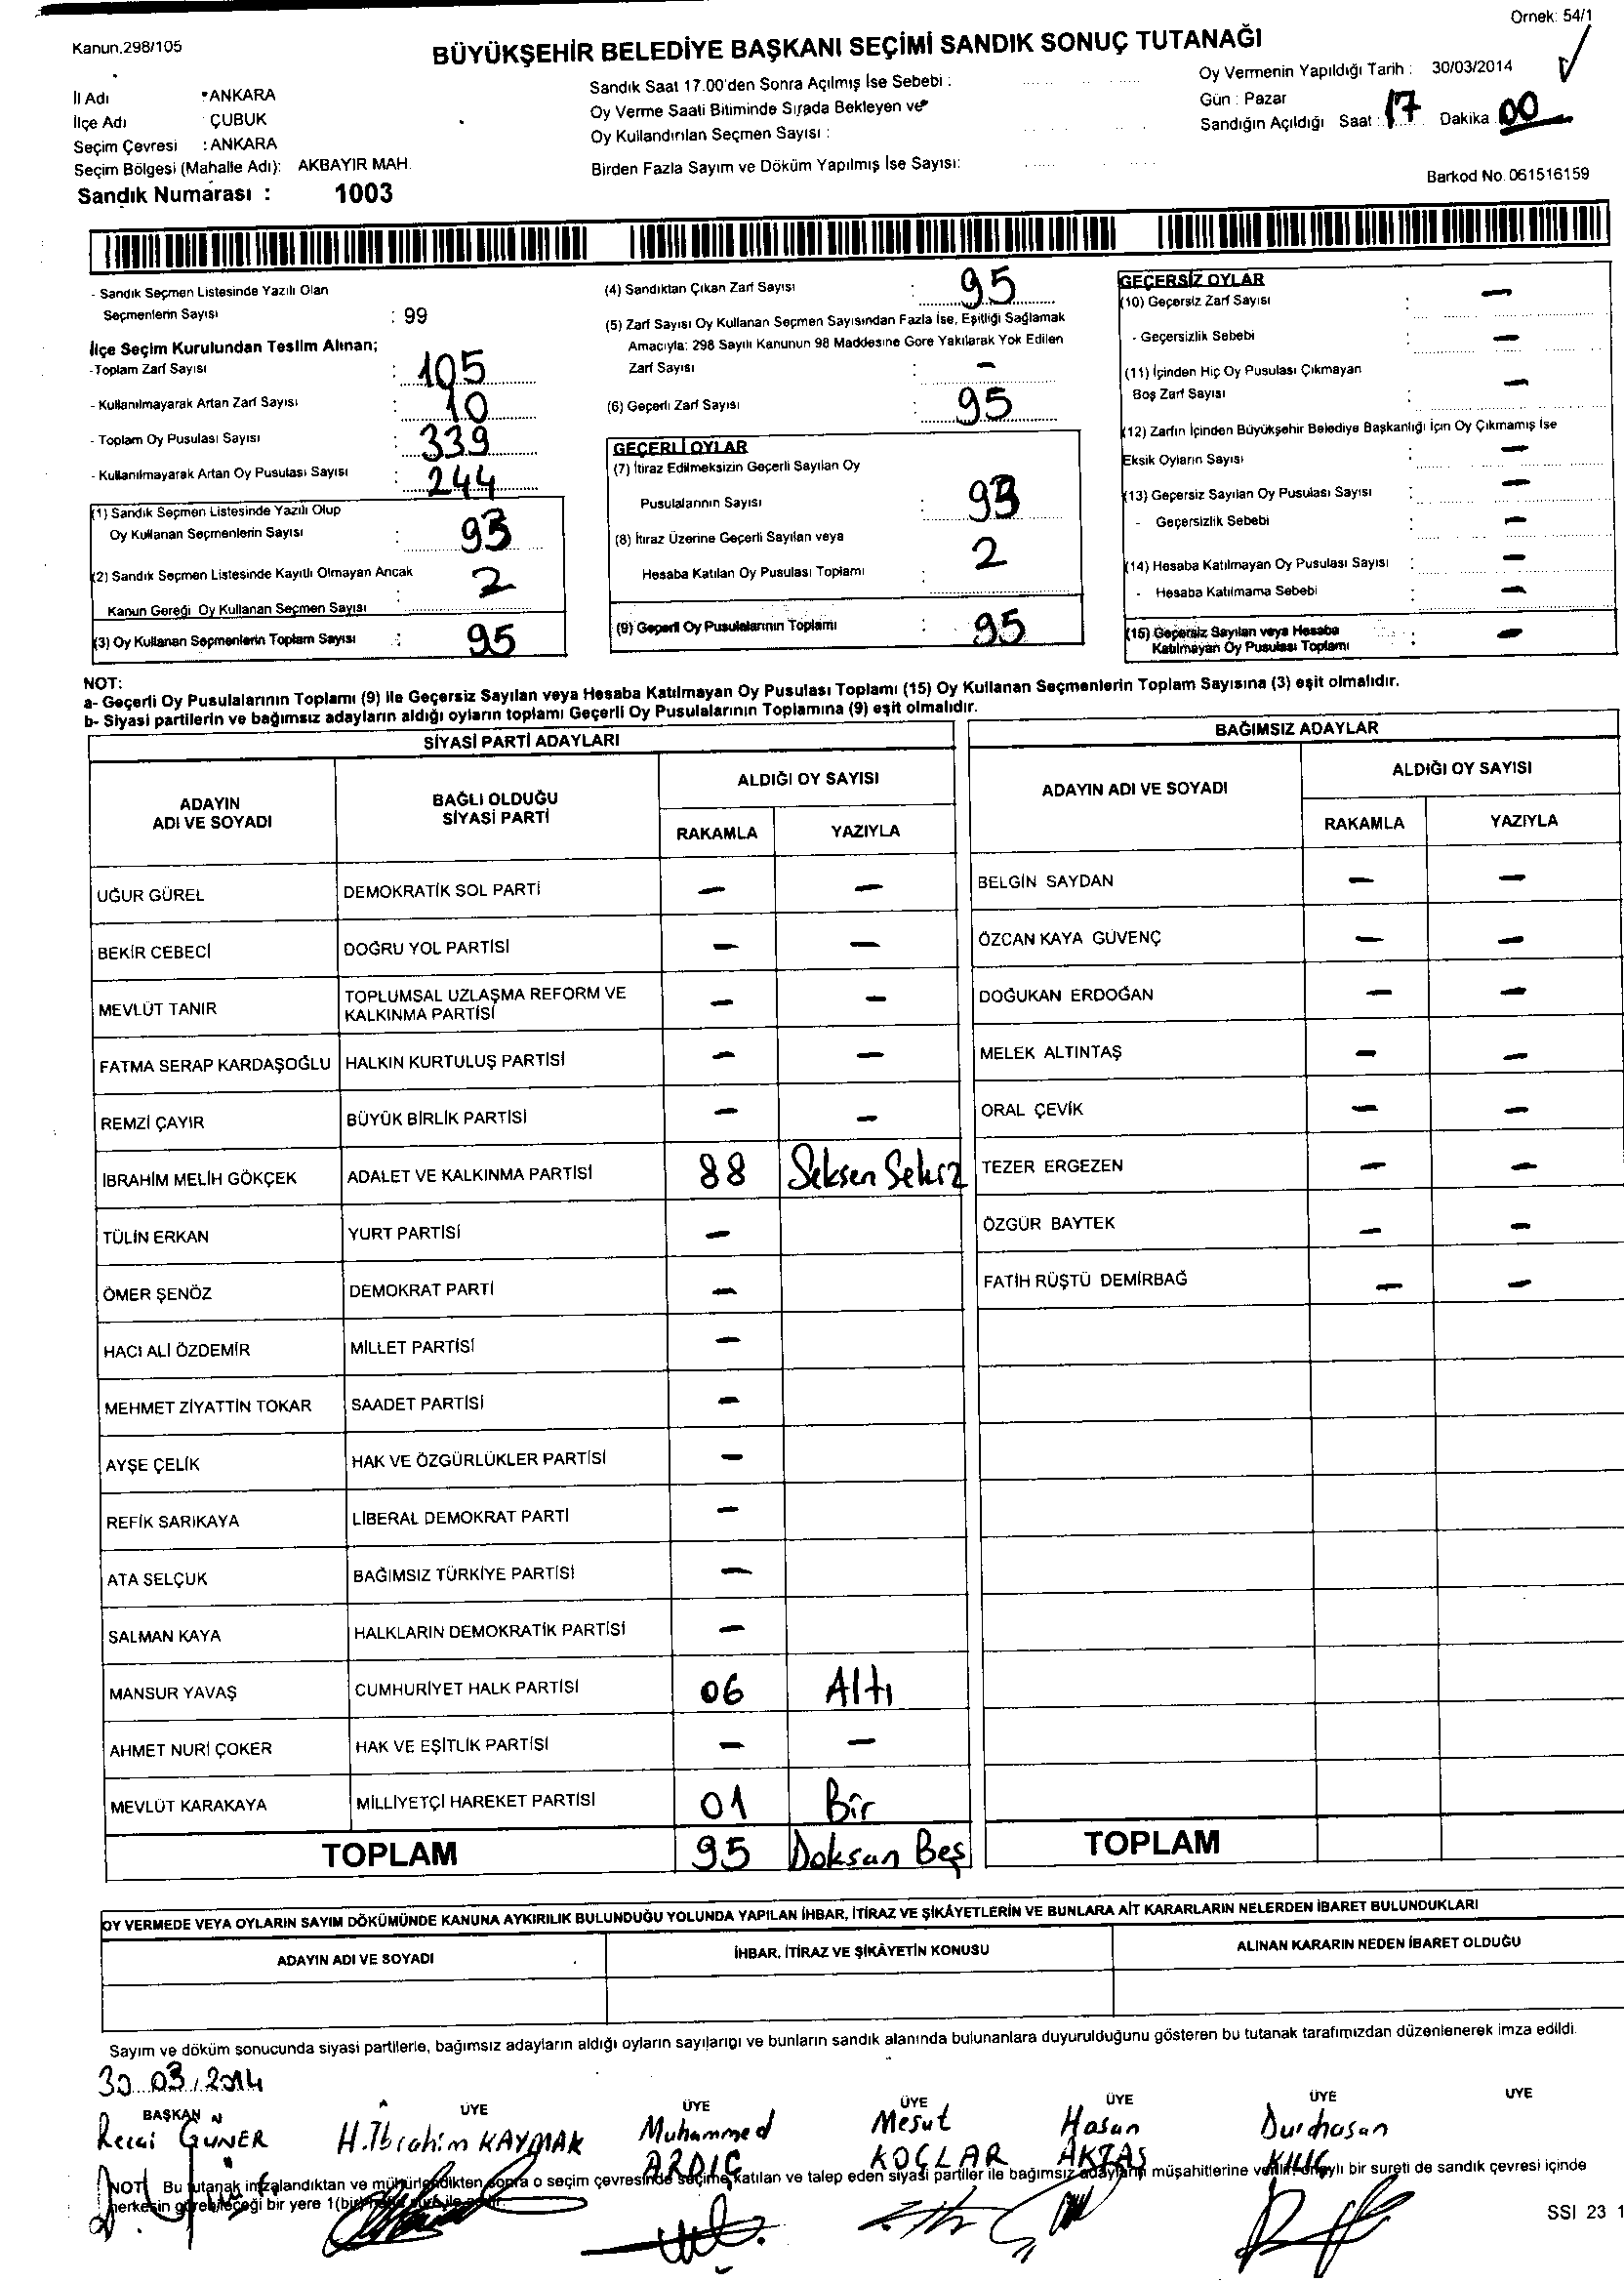 Örnek: 54/1
Kanun.298/105
BÜYÜKŞEHİR BELEDİYE BAŞKANI SEÇİMİ SANDIK SONUÇ TUTANAĞI
İl Adı : ANKARA
İlçe Adı ÇUBUK
Seçim Çevresi : ANKARA
Seçim Bölgesi (Mahalle Adı): AKBAYIR MAH.
Sandık Numarası : 1003
Sandık Saat 17.00'den Sonra Açılmış İse Sebebi :
Oy Verme Saati Bitiminde Sırada Bekleyen ve
Oy Kullandırılan Seçmen Sayısı :
Birden Fazla Sayım ve Döküm Yapılmış İse Sayısı:
Oy Vermenin Yapıldığı Tarih : 30/03/2014
Gün : Pazar
Sandığın Açıldığı Saat : 17 Dakika 00
Barkod No. 061516159
- Sandık Seçmen Listesinde Yazılı Olan
Seçmenlerin Sayısı : 99
İlçe Seçim Kurulundan Teslim Alınan;
-Toplam Zarf Sayısı : 105
- Kullanılmayarak Artan Zarf Sayısı : 10
- Toplam Oy Pusulası Sayısı : 339
- Kullanılmayarak Artan Oy Pusulası Sayısı : 244
(1) Sandık Seçmen Listesinde Yazılı Olup
Oy Kullanan Seçmenlerin Sayısı : 93
(2) Sandık Seçmen Listesinde Kayıtlı Olmayan Ancak
Kanun Gereği Oy Kullanan Seçmen Sayısı : 2
(3) Oy Kullanan Seçmenlerin Toplam Sayısı : 95
(4) Sandıktan Çıkan Zarf Sayısı : 95
(5) Zarf Sayısı Oy Kullanan Seçmen Sayısından Fazla İse, Eşitliği Sağlamak
Amacıyla: 298 Sayılı Kanunun 98 Maddesine Göre Yakılarak Yok Edilen
Zarf Sayısı : -
(6) Geçerli Zarf Sayısı : 95
GEÇERLİ OYLAR
(7) İtiraz Edilmeksizin Geçerli Sayılan Oy
Pusulalarının Sayısı : 93
(8) İtiraz Üzerine Geçerli Sayılan veya
Hesaba Katılan Oy Pusulası Toplamı : 2
(9) Geçerli Oy Pusulalarının Toplamı : 95
GEÇERSİZ OYLAR
(10) Geçersiz Zarf Sayısı : -
- Geçersizlik Sebebi : -
(11) İçinden Hiç Oy Pusulası Çıkmayan
Boş Zarf Sayısı : -
(12) Zarfın İçinden Büyükşehir Belediye Başkanlığı İçin Oy Çıkmamış İse
Eksik Oyların Sayısı : -
(13) Geçersiz Sayılan Oy Pusulası Sayısı : -
- Geçersizlik Sebebi : -
(14) Hesaba Katılmayan Oy Pusulası Sayısı : -
- Hesaba Katılmama Sebebi : -
(15) Geçersiz Sayılan veya Hesaba
Katılmayan Oy Pusulası Toplamı : -
NOT:
a- Geçerli Oy Pusulalarının Toplamı (9) ile Geçersiz Sayılan veya Hesaba Katılmayan Oy Pusulası Toplamı (15) Oy Kullanan Seçmenlerin Toplam Sayısına (3) eşit olmalıdır.
b- Siyasi partilerin ve bağımsız adayların aldığı oyların toplamı Geçerli Oy Pusulalarının Toplamına (9) eşit olmalıdır.
SİYASİ PARTİ ADAYLARI
ADAYIN ADI VE SOYADI BAĞLI OLDUĞU SİYASİ PARTİ ALDIĞI OY SAYISI
RAKAMLA YAZIYLA
UĞUR GÜREL DEMOKRATİK SOL PARTİ - -
BEKİR CEBECİ DOĞRU YOL PARTİSİ - -
MEVLÜT TANIR TOPLUMSAL UZLAŞMA REFORM VE KALKINMA PARTİSİ - -
FATMA SERAP KARDAŞOĞLU HALKIN KURTULUŞ PARTİSİ - -
REMZİ ÇAYIR BÜYÜK BİRLİK PARTİSİ - -
İBRAHİM MELİH GÖKÇEK ADALET VE KALKINMA PARTİSİ 88 Seksen Sekiz
TÜLİN ERKAN YURT PARTİSİ -
ÖMER ŞENÖZ DEMOKRAT PARTİ -
HACI ALİ ÖZDEMİR MİLLET PARTİSİ -
MEHMET ZİYATTİN TOKAR SAADET PARTİSİ -
AYŞE ÇELİK HAK VE ÖZGÜRLÜKLER PARTİSİ -
REFİK SARIKAYA LİBERAL DEMOKRAT PARTİ -
ATA SELÇUK BAĞIMSIZ TÜRKİYE PARTİSİ -
SALMAN KAYA HALKLARIN DEMOKRATİK PARTİSİ -
MANSUR YAVAŞ CUMHURİYET HALK PARTİSİ 06 Altı
AHMET NURİ ÇOKER HAK VE EŞİTLİK PARTİSİ - -
MEVLÜT KARAKAYA MİLLİYETÇİ HAREKET PARTİSİ 01 Bir
TOPLAM 95 Doksan Beş
BAĞIMSIZ ADAYLAR
ADAYIN ADI VE SOYADI ALDIĞI OY SAYISI
RAKAMLA YAZIYLA
BELGİN SAYDAN - -
ÖZCAN KAYA GÜVENÇ - -
DOĞUKAN ERDOĞAN - -
MELEK ALTINTAŞ - -
ORAL ÇEVİK - -
TEZER ERGEZEN - -
ÖZGÜR BAYTEK - -
FATİH RÜŞTÜ DEMİRBAĞ - -
TOPLAM
OY VERMEDE VEYA OYLARIN SAYIM DÖKÜMÜNDE KANUNA AYKIRILIK BULUNDUĞU YOLUNDA YAPILAN İHBAR, İTİRAZ VE ŞİKÂYETLERİN VE BUNLARA AİT KARARLARIN NELERDEN İBARET BULUNDUKLARI
ADAYIN ADI VE SOYADI İHBAR, İTİRAZ VE ŞİKÂYETİN KONUSU ALINAN KARARIN NEDEN İBARET OLDUĞU
Sayım ve döküm sonucunda siyasi partilerle, bağımsız adayların aldığı oyların sayılarıgı ve bunların sandık alanında bulunanlara duyurulduğunu gösteren bu tutanak tarafımızdan düzenlenerek imza edildi.
30.03.2014
BAŞKAN ÜYE ÜYE ÜYE ÜYE ÜYE ÜYE
Recai GÜNER H.İbrahim KAYMAK Muhammed ARDIÇ Mesut KOÇLAR Hasan AKTAŞ Durhasan KILIÇ
NOT Bu tutanak imzalandıktan ve mühürlendikten sonra o seçim çevresinde seçime katılan ve talep eden siyasi partiler ile bağımsız adayların müşahitlerine verilir. onaylı bir sureti de sandık çevresi içinde
herkesin görebileceği bir yere 1(bir)
SSI 23 1